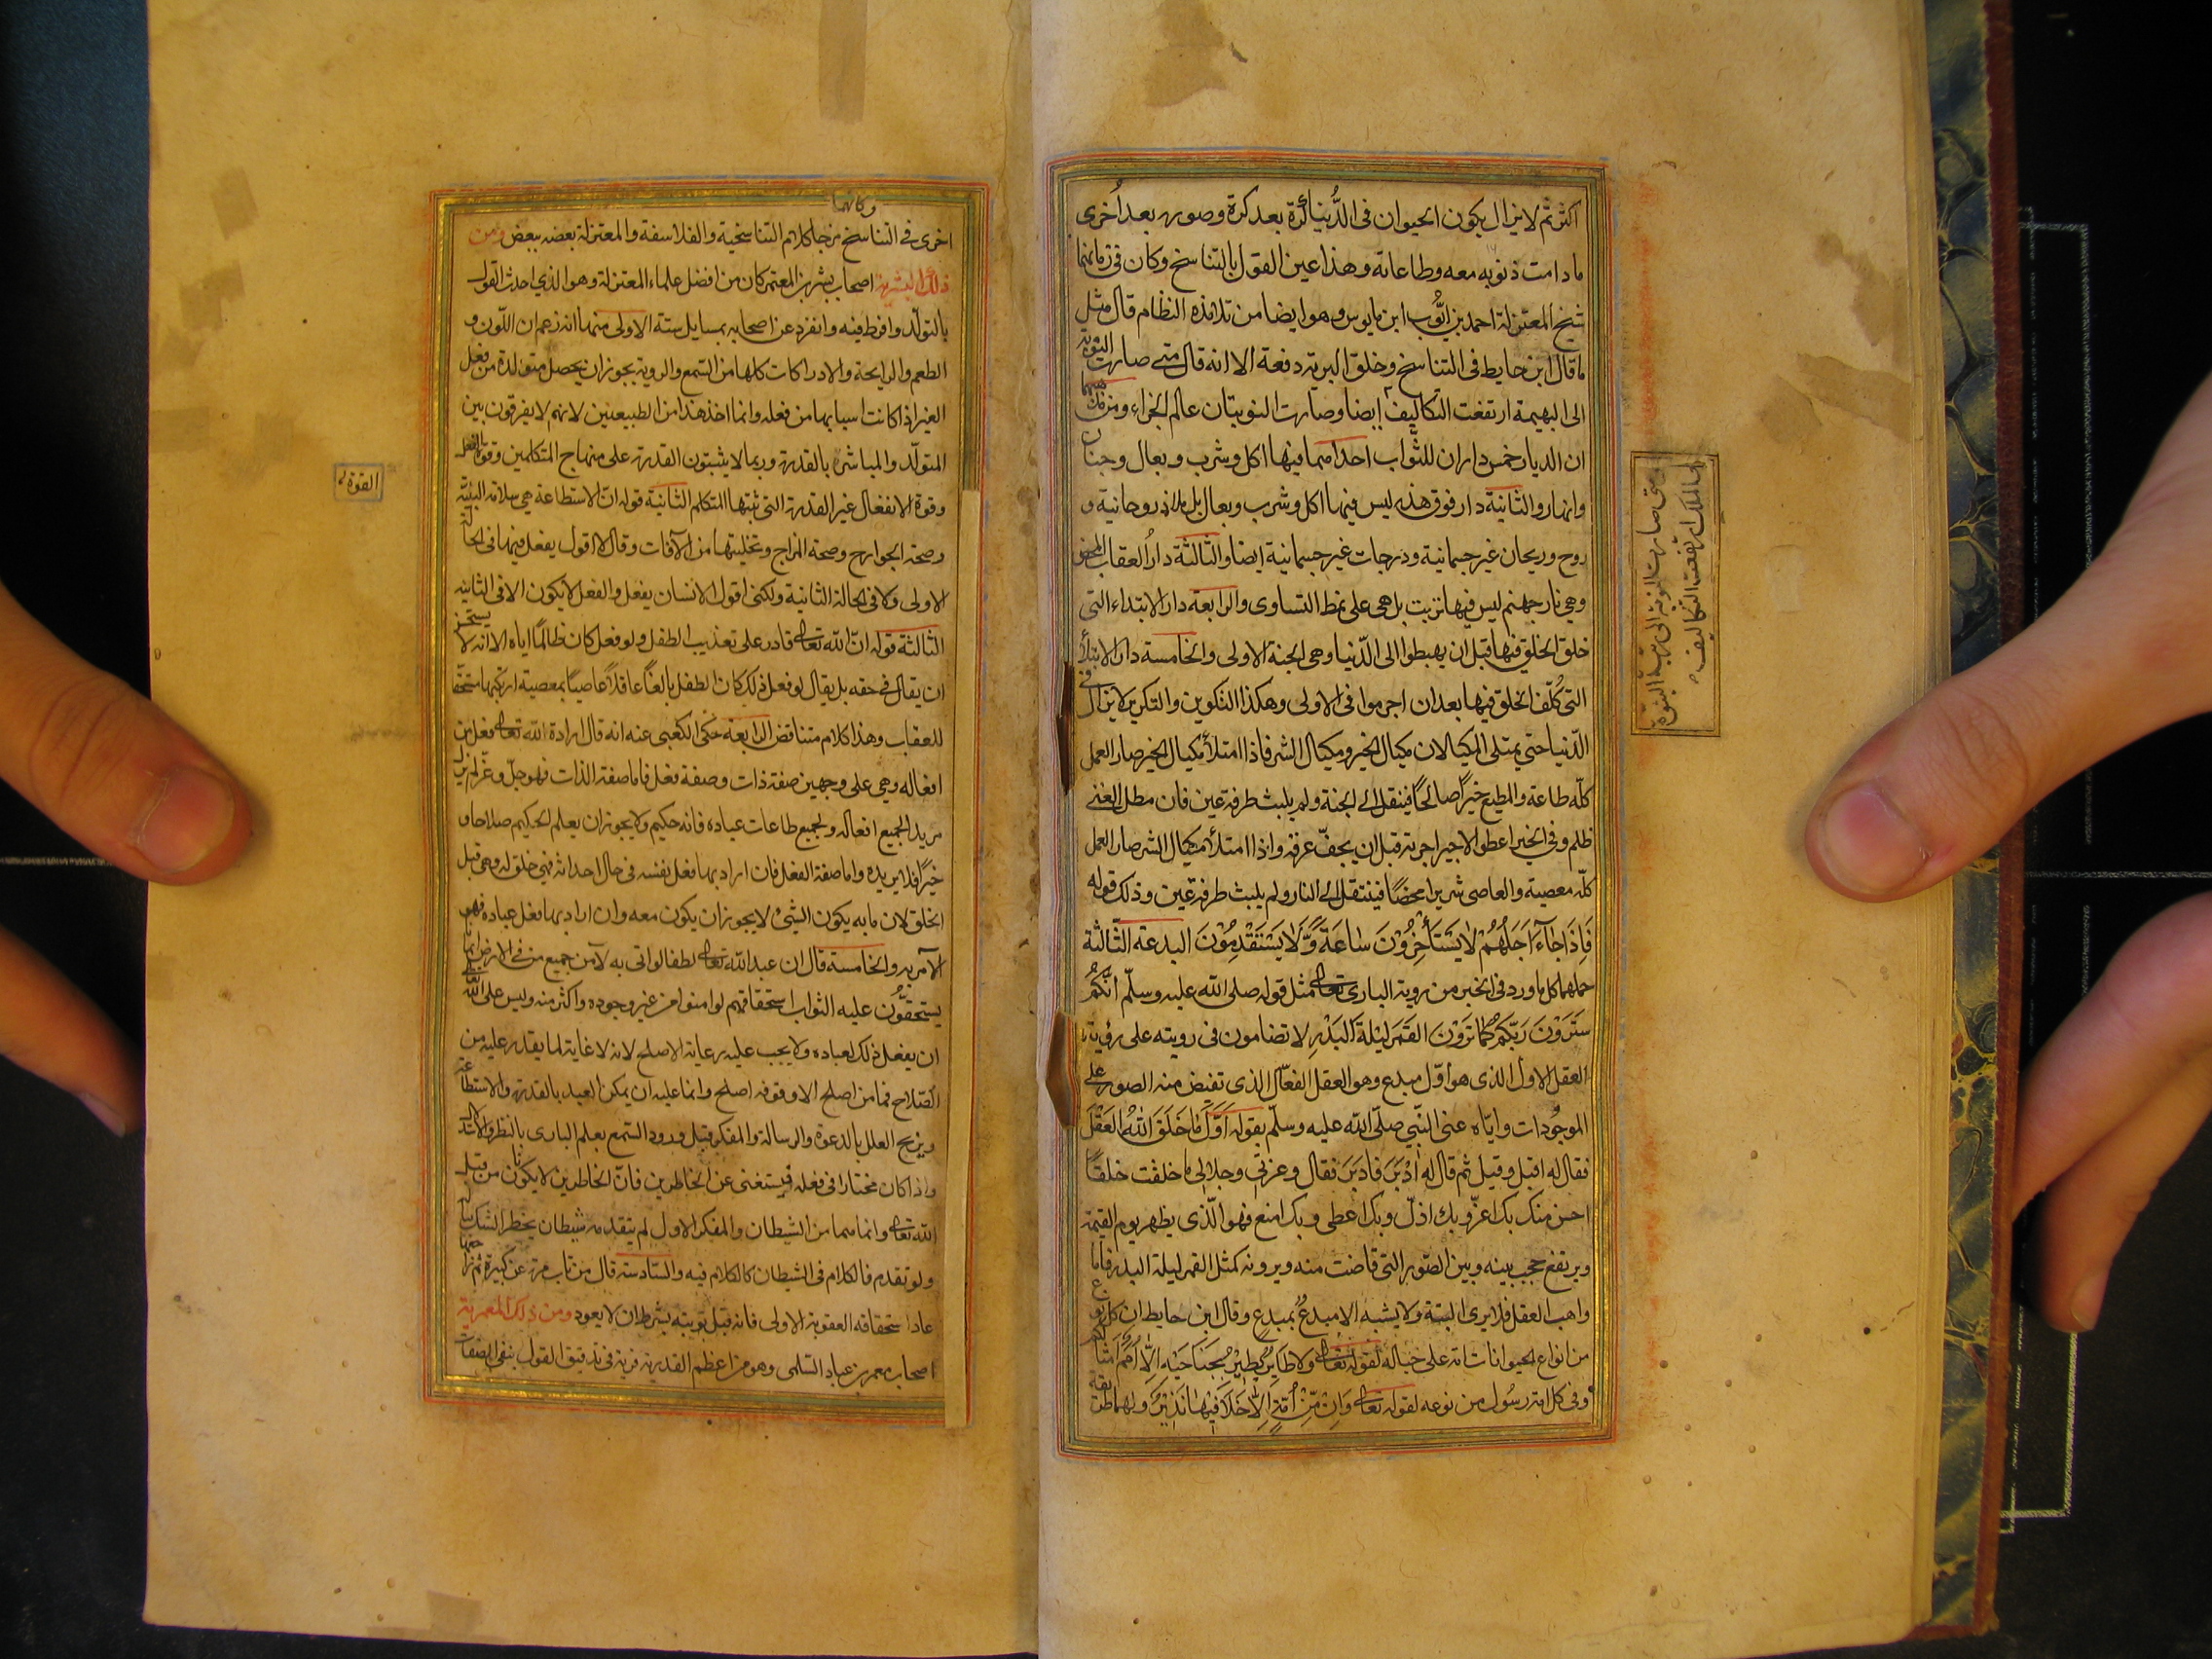 اكثر ثم لا يزال يكون الحيوان فى الدُّنيا كرّة بعد كرة وصورة بعد اُخرى
ما دامت ذنوبه معه وطاعاته وهذا عين القول بالتناسخ وكان فى زمانهما
شيخ المعتزلة احمد بن ايُّوب ابن مايوس وهو ايضا من تلامذه النظام قال مثل
ما قال ابن حايط فى التناسخ وخلق البرية دفعة الا انه قال متى صارت التوبة
الى البهيمة ارتفعت التكاليف ايضا وصارت النوبتان عالم الجزاء ومن مذهبهما
ان الديار خمس داران للثواب احداهما فيها اكل وشرب وبعال وجنات
وانهار والثانية دار فوق هذه ليس فيها اكل وشرب وبعال بل ملاذ روحانية و
روح وريحان غير جسمانية ودرجات غير جسمانية ايضا والثالثة دارُ العقاب المحض
وهى نار جهنم ليس فيها ترتيب بل هى على نمط التساوى والرابعة دار الابتداء التى
خلق الخلق فيها قبل ان يهبطوا الى الدّنيا وهى الجنة الاولى والخامسة دار الابتلاء
التى كُلّف الخلق فيها بعد ان اجرموا فى الاولى وهكذا التكوين والتكرير لا يزال فى
الدّنيا حتى يمتلى المكيالان مكيال الخير ومكيال الشر فاذا امتلأ مكيال الخير صار العمل
كلّه طاعة والمطيع خيرًا صالحًا فينقل الى الجنة ولم يلبث طرفة عين فان مطل الغنى
ظلم وفى الخبر اعطوا الاجير اجرته قبل ان يجفّ عرقه واذا امتلأ مكيال الشر صار العمل
كلّه معصية والعاصى شريرا محضًا فينتقل الى النار ولم يلبث طرفة عين وذلك قوله
فَاِذَا جَآءَ اَجَلُهُمْ لَا يَسْتَأخِرُوْنَ سَاعَةً وَّلَا يَسْتَقْدِمُوْنَ البدعة الثّالثة
حملهما كل ما ورد فى الخبر من روية البارى تعالى مثل قوله صلى الله عليه وسلّم انَّكُمْ
سَتَرَوْنَ رَبَّكُمْ كَمَا تَرَوْنَ القَمَرَ لَيْلَةَ البَدْرِ لا تضامون فى رويته على رؤية
العقل الاول الذى هو اوّل مبدع وهو العقل الفعّال الذى تفيض منه الصور على
الموجُودات واياه عنى النّبى صلّى الله عليه وسلّم بقوله اَوَّلُ مَا خَلَقَ اللهُ العَقْلَ
فقال له اقبل وقبل ثم قال له اَدْبَرَ فادبَرَ فقال وعزتى وجلالى ما خلقت خلقًا
احسن منك بك اعزّ وبك اذلّ وبك اعطى وبك امنع فهو الّذى يظهر يوم القيمة
ويرتفع حجب بينه وبين الصّور التى فاضت منه ويرونه كمثل القمر ليلة البدر فاما
واهب العقل فلا يرى البتة ولا يشبه الا مبدعٌ بمبدع وقال ابن حايط ان كل نوع
من انواع الحيوانات امة على حياله لقوله تعالى ولا طايرٍ يطير بجناحيه اِلَّا اُمَمٌ اَمْثَالُكُمْ
وفى كل امة رسُول من نوعه لقوله تعالى وَاِنْ مِّنْ اُمَّةٍ اِلَّا خَلَا فِيْهَا نَذِيْرٌ ولهما طريقة
متى صارت النوبة الى رتبة النبوة
والملك ارتفعت التكاليف
وكانهما
اخرى فى التناسخ مزجا كلام التناسخية والفلاسفة والمعتزلة بعضه ببعض ومن
ذلك البشرية اصحاب بشر بن المعتمر كان من افضل علماء المعتزلة وهو الذي احدث القول
بالتولّد وافرط فيه وانفرد عن اصحابه بمسايل ستة الاولى منها انه زعم ان اللّون و
الطعم والرايحة والادراكات كلها من السّمع والروية يجوز ان يحصل متولدة من فعل
الغير اذا كانت اسبابها من فعله وانما اخذ هذا من الطبيعيين لانهم لا يفرقون بين
المتولّد والمباشرة بالقدرة وربما لا يثبتون القدرة على منهاج المتكلمين وقوة الفعل
وقوة الانفعال غير القدرة التى يثبتها المتكلم الثانية قوله انّ الاستطاعة هى سلامة البنيّة
وصحة الجوارح وصحة المزاج وتخليتها من الآفات وقال لا اقول يفعل فيها فى الحالة
الاولى ولا فى الحالة الثانية ولكنى اقول الانسان يفعل والفعل لا يكون الا فى الثانية
الثالثة قوله انّ الله تعالى قادر على تعذيب الطفل ولو فعل كان ظالمًا اياه الا انه لا يستحسن
ان يقال فى حقه بل يقال لو فعل ذلك كان الطفل بالغًا عاقلًا عاصيًا بمعصية ارتكبها مستحقا
للعقاب وهذا كلام متناقض الرابعة حكى الكعبى عنه انه قال ارادة الله تعالى فعل من
افعاله وهى على وجهين صفة ذات وصفة فعل فاما صفة الذات فهو جلّ وعزّ لم يزل
مريدا لجميع افعاله ولجميع طاعات عباده فانه حكيم ولا يجوز ان يعلم الحكيم صلاحا و
خيرًا فلا يريده واما صفة الفعل فان اراد بها فعل نفسه فى حال احداثه فهى خلق له وهى قبل
الخلق لان ما به يكون الشىء لا يجوز ان يكون معه وان اراد بها فعل عباده فهو
الآمر به والخامسة قال ان عند الله تعالى لطفا لو اتى به لآمن جميع من فى الارض ايمانا
يستحقُّون عليه الثواب استحقاقهم لو امنوا من غير وجوده واكثر منه وليس على الله
ان يفعل ذلك لعباده ولا يجب عليه رعاية الاصلح لانه لا غاية لما يقدر عليه من
الصّلاح فما من اصلح الا وفوقه اصلح وانما عليه ان يمكن العبد بالقدرة والاستطاعة
ويزيح العلل بالدعوة والرسالة والمفكر قبل ورود السّمع يعلم البارى بالنظر والاستدلال
واذا كان مختارا فى فعله فيستغنى عن الخاطرين فانّ الخاطرين لا يكونان من قبل
الله تعالى وانما هما من الشيطان والمفكر الاول لم يتقدمه شيطان يخطر الشك بباله
ولو تقدم فالكلام فى الشيطان كالكلام فيه والسّادسة قال من تاب مرة عن كبيرة ثم راجعها
عاد استحقاقه العقوبة الاولى فانه قبل توبته بشرط ان لا يعود ومن ذلك المعمرية
اصحاب معمر بن عباد السّلمى وهو من اعظم القدرية فرية فى تدقيق القول بنفى الصفات
القوة